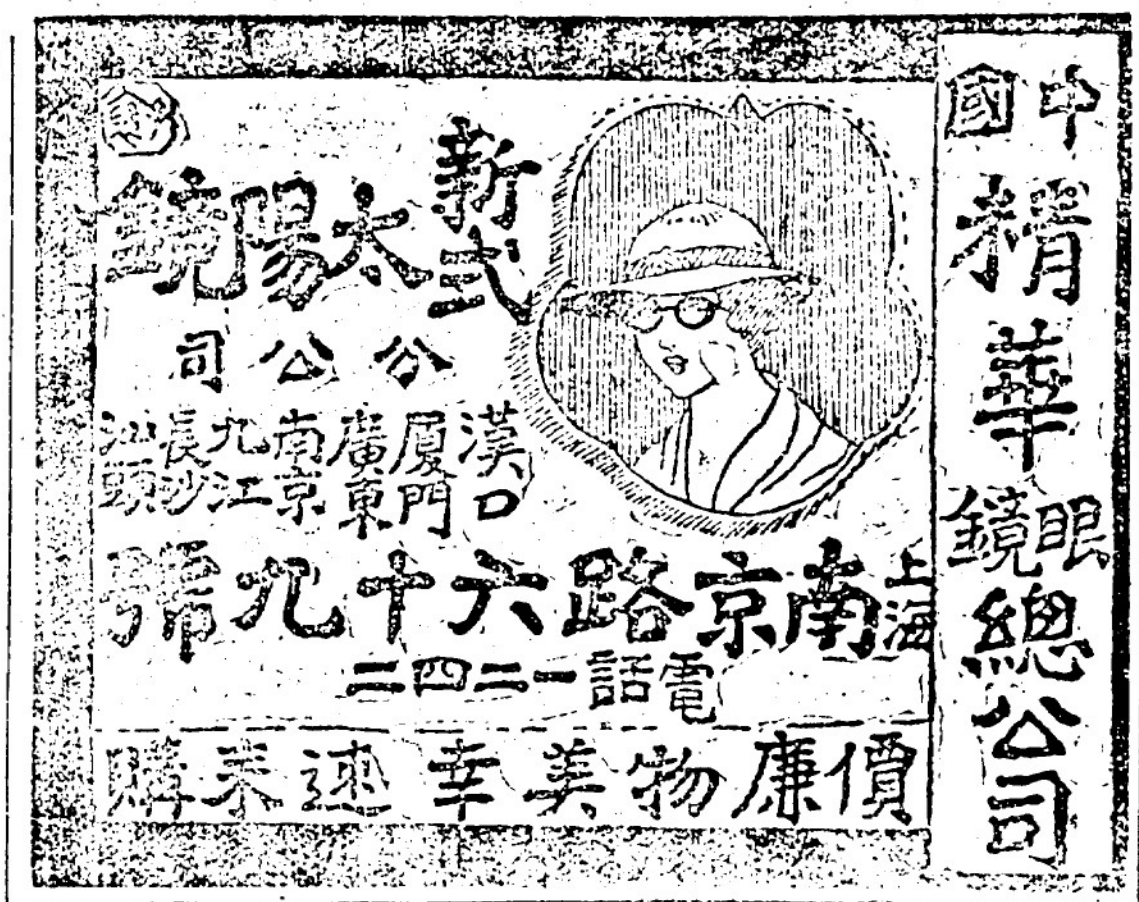 中國精華眼鏡總公司
新式
太陽鏡
分公司
漢口 厦門 廣東 南京 九江 長沙 汕頭
上海南京路六十九號
電話一二四二
價廉物美幸速來購